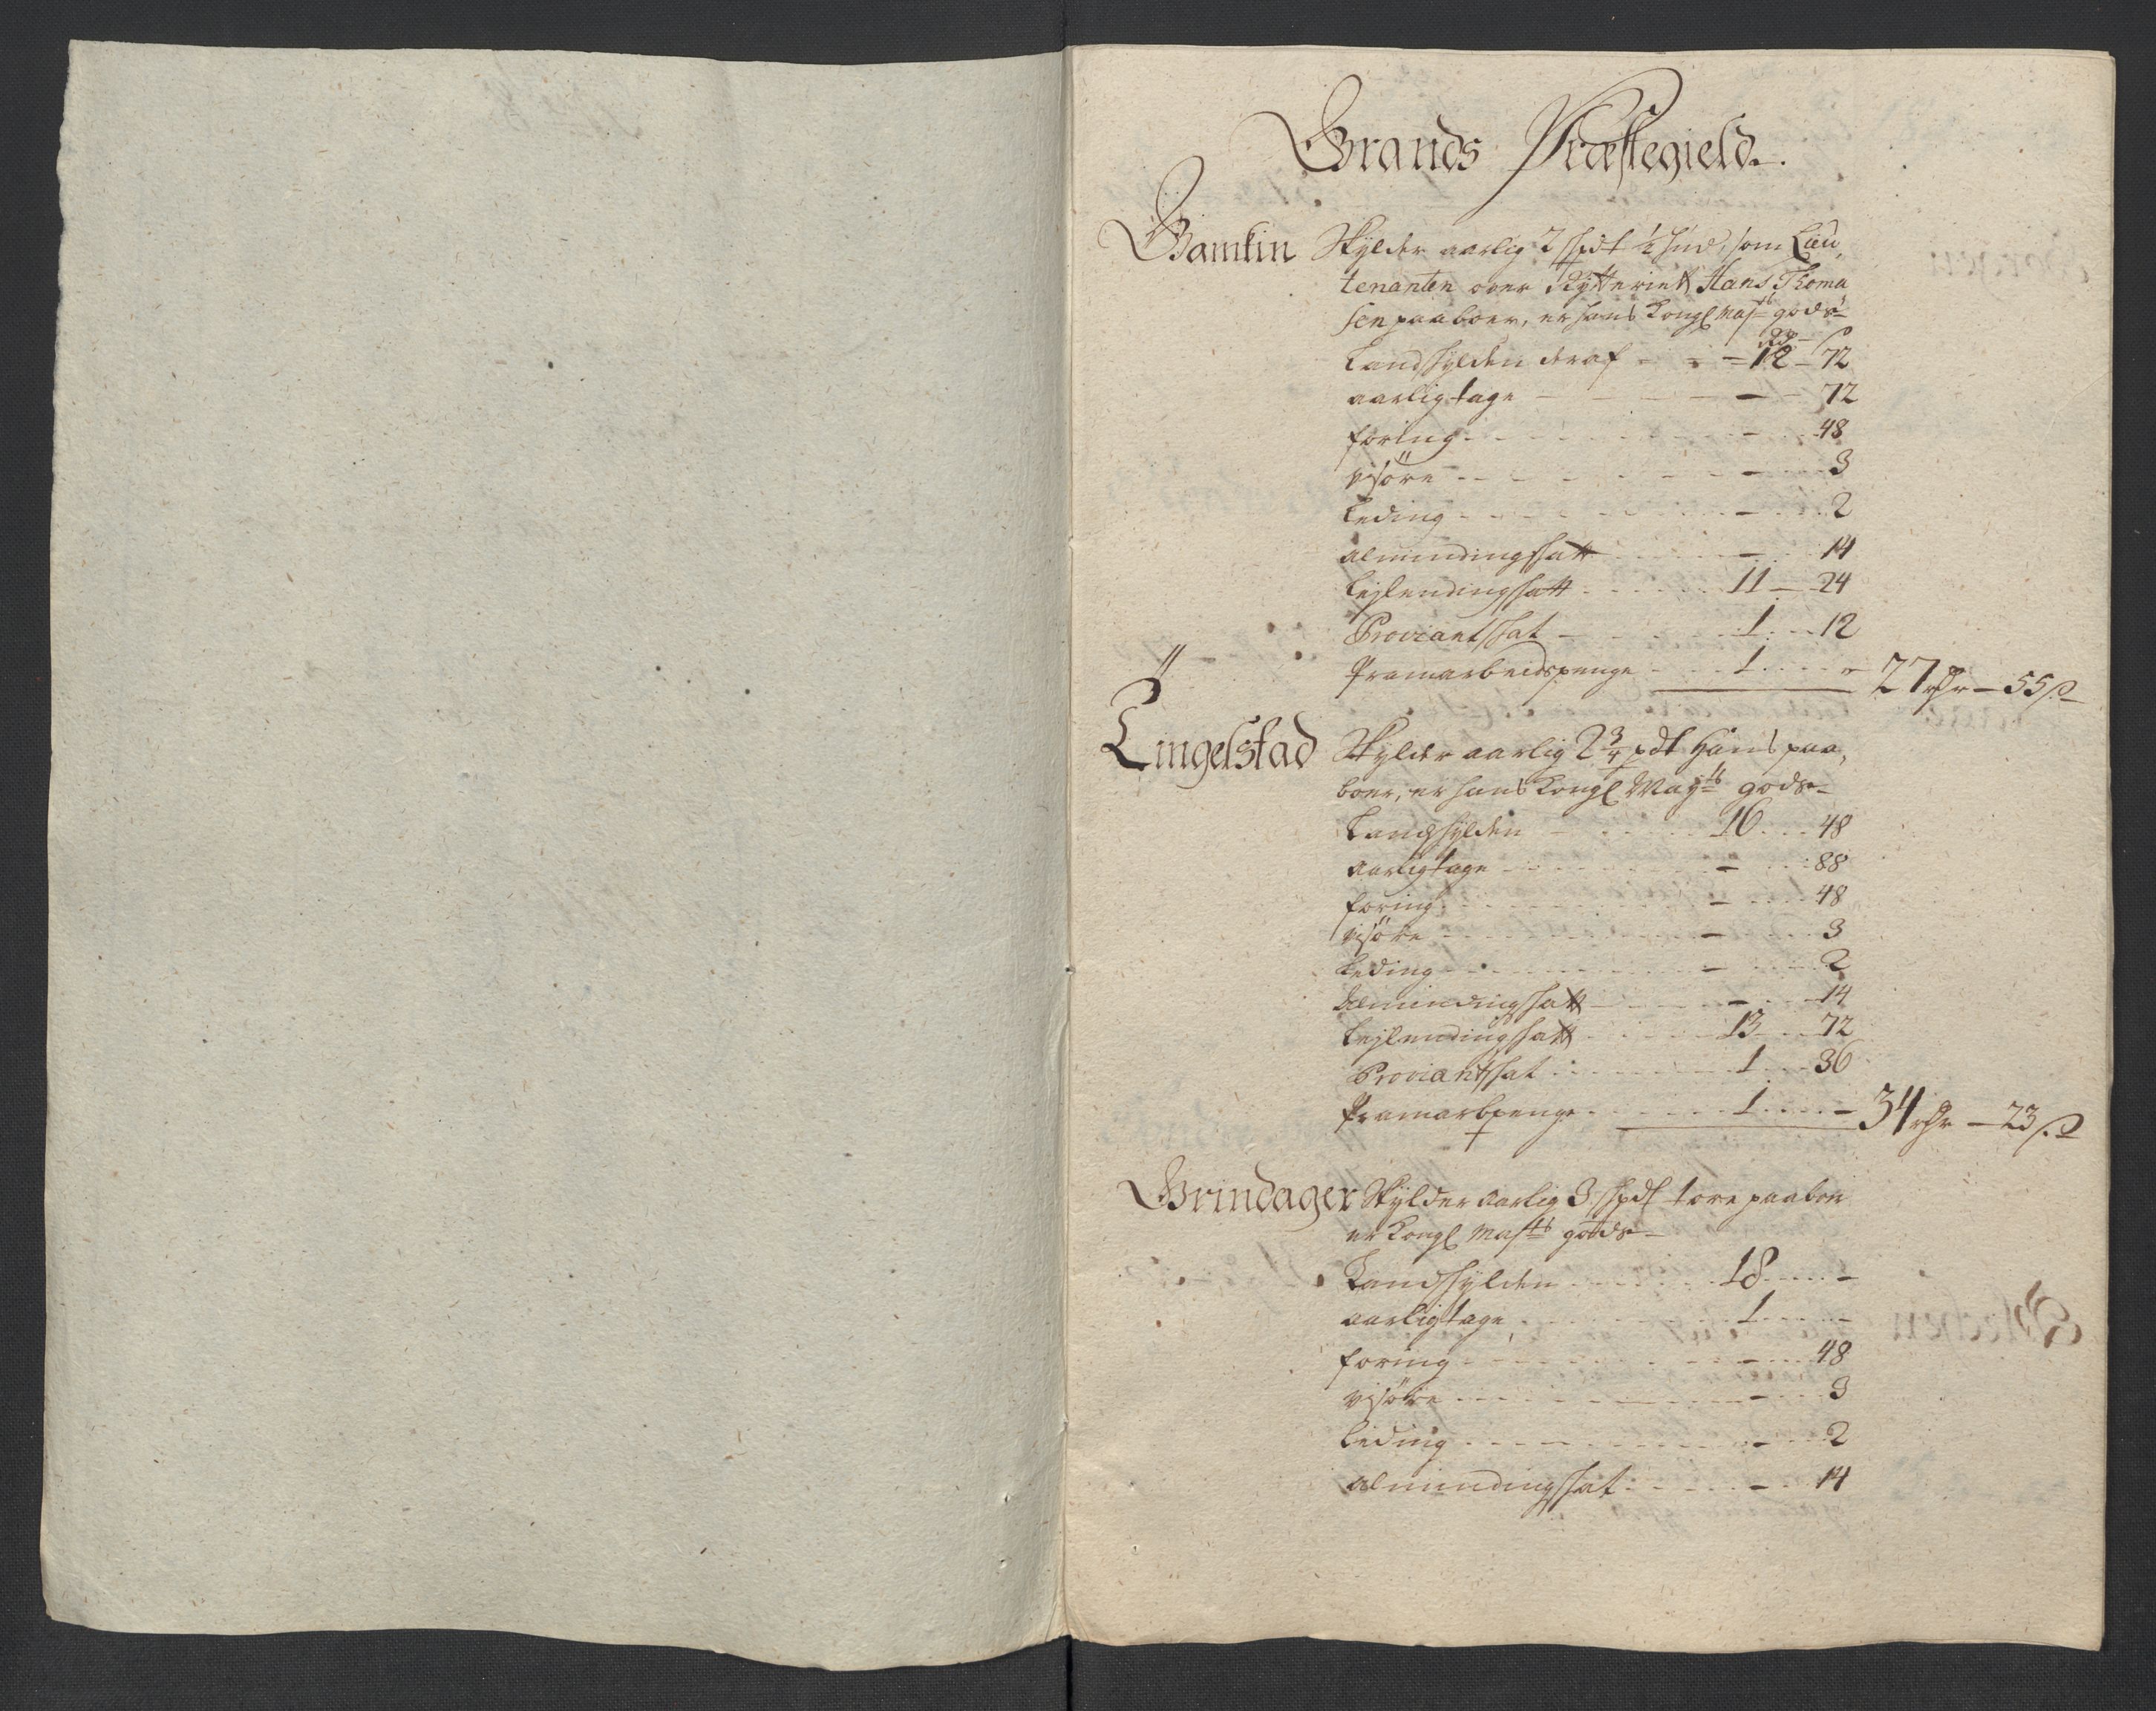 Brands Præstegield.
Gamkin Skylder aarlig 2 skpdt ½ hud, som Lieu,
tenanten over Rytteriett Hans Thoma
sen paaboer, er hans Kongl Mayts gods
Rdr – s
Landskylden deraf - - - 12 - 72
aarligtage - - - - 72
foring - - - - 48
visøre - - - - 3
Leding - - - - 2
almindingskatt - - - 14
Lejlendingskatt - - - 11 - 24
Proviantskat - - - 1 - 12
Framarbeidspenge - - - 1 - - 27 rdr - 55 s
Lingelstad Skylder aarlig 2 ¾ pdt Hans paa,
boer, er hans Kongl Mayts gods
Landskylden - - - 16 - 48
aarligtage - - - - 88
foring - - - - 48
visøre - - - - 3
Leding - - - - 2
Almindingskatt - - - 14
Lejlendingskatt - - - 13 - 72
Proviantskat - - - 1 - 36
Framarbpenge - - - 1 - - 34 rdr - 23 s
Grindager Skylder aarlig 3 skpdt tore paaboer
er Kongl Mayts gods
Landskylden - - - 18 - -
aarligtage - - - 1 - -
foring - - - - 48
visøre - - - - 3
Leding - - - - 2
almindingskat - - - 14